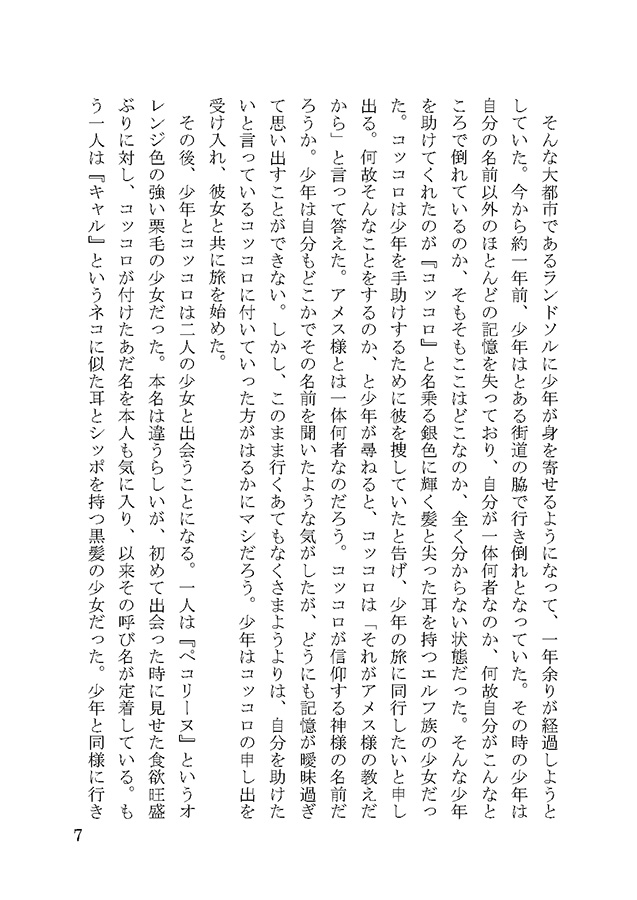 そんな大都市であるランドソルに少年が身を寄せるようになって、一年余りが経過しようと
していた。今から約一年前、少年はとある街道の脇で行き倒れとなっていた。その時の少年は
自分の名前以外のほとんどの記憶を失っており、自分が一体何者なのか、何故自分がこんなと
ころで倒れているのか、そもそもここはどこなのか、全く分からない状態だった。そんな少年
を助けてくれたのが『コッコロ』と名乗る銀色に輝く髪と尖った耳を持つエルフ族の少女だっ
た。コッコロは少年を手助けするために彼を捜していたと告げ、少年の旅に同行したいと申し
出る。何故そんなことをするのか、と少年が尋ねると、コッコロは「それがアメス様の教えだ
から」と言って答えた。アメス様とは一体何者なのだろう。コッコロが信仰する神様の名前だ
ろうか。少年は自分もどこかでその名前を聞いたような気がしたが、どうにも記憶が曖昧過ぎ
て思い出すことができない。しかし、このまま行くあてもなくさまようよりは、自分を助けた
いと言っているコッコロに付いていった方がはるかにマシだろう。少年はコッコロの申し出を
受け入れ、彼女と共に旅を始めた。
その後、少年とコッコロは二人の少女と出会うことになる。一人は『ペコリーヌ』というオ
レンジ色の強い栗毛の少女だった。本名は違うらしいが、初めて出会った時に見せた食欲旺盛
ぶりに対し、コッコロが付けたあだ名を本人も気に入り、以来その呼び名が定着している。も
う一人は『キャル』というネコに似た耳とシッポを持つ黒髪の少女だった。少年と同様に行き
7